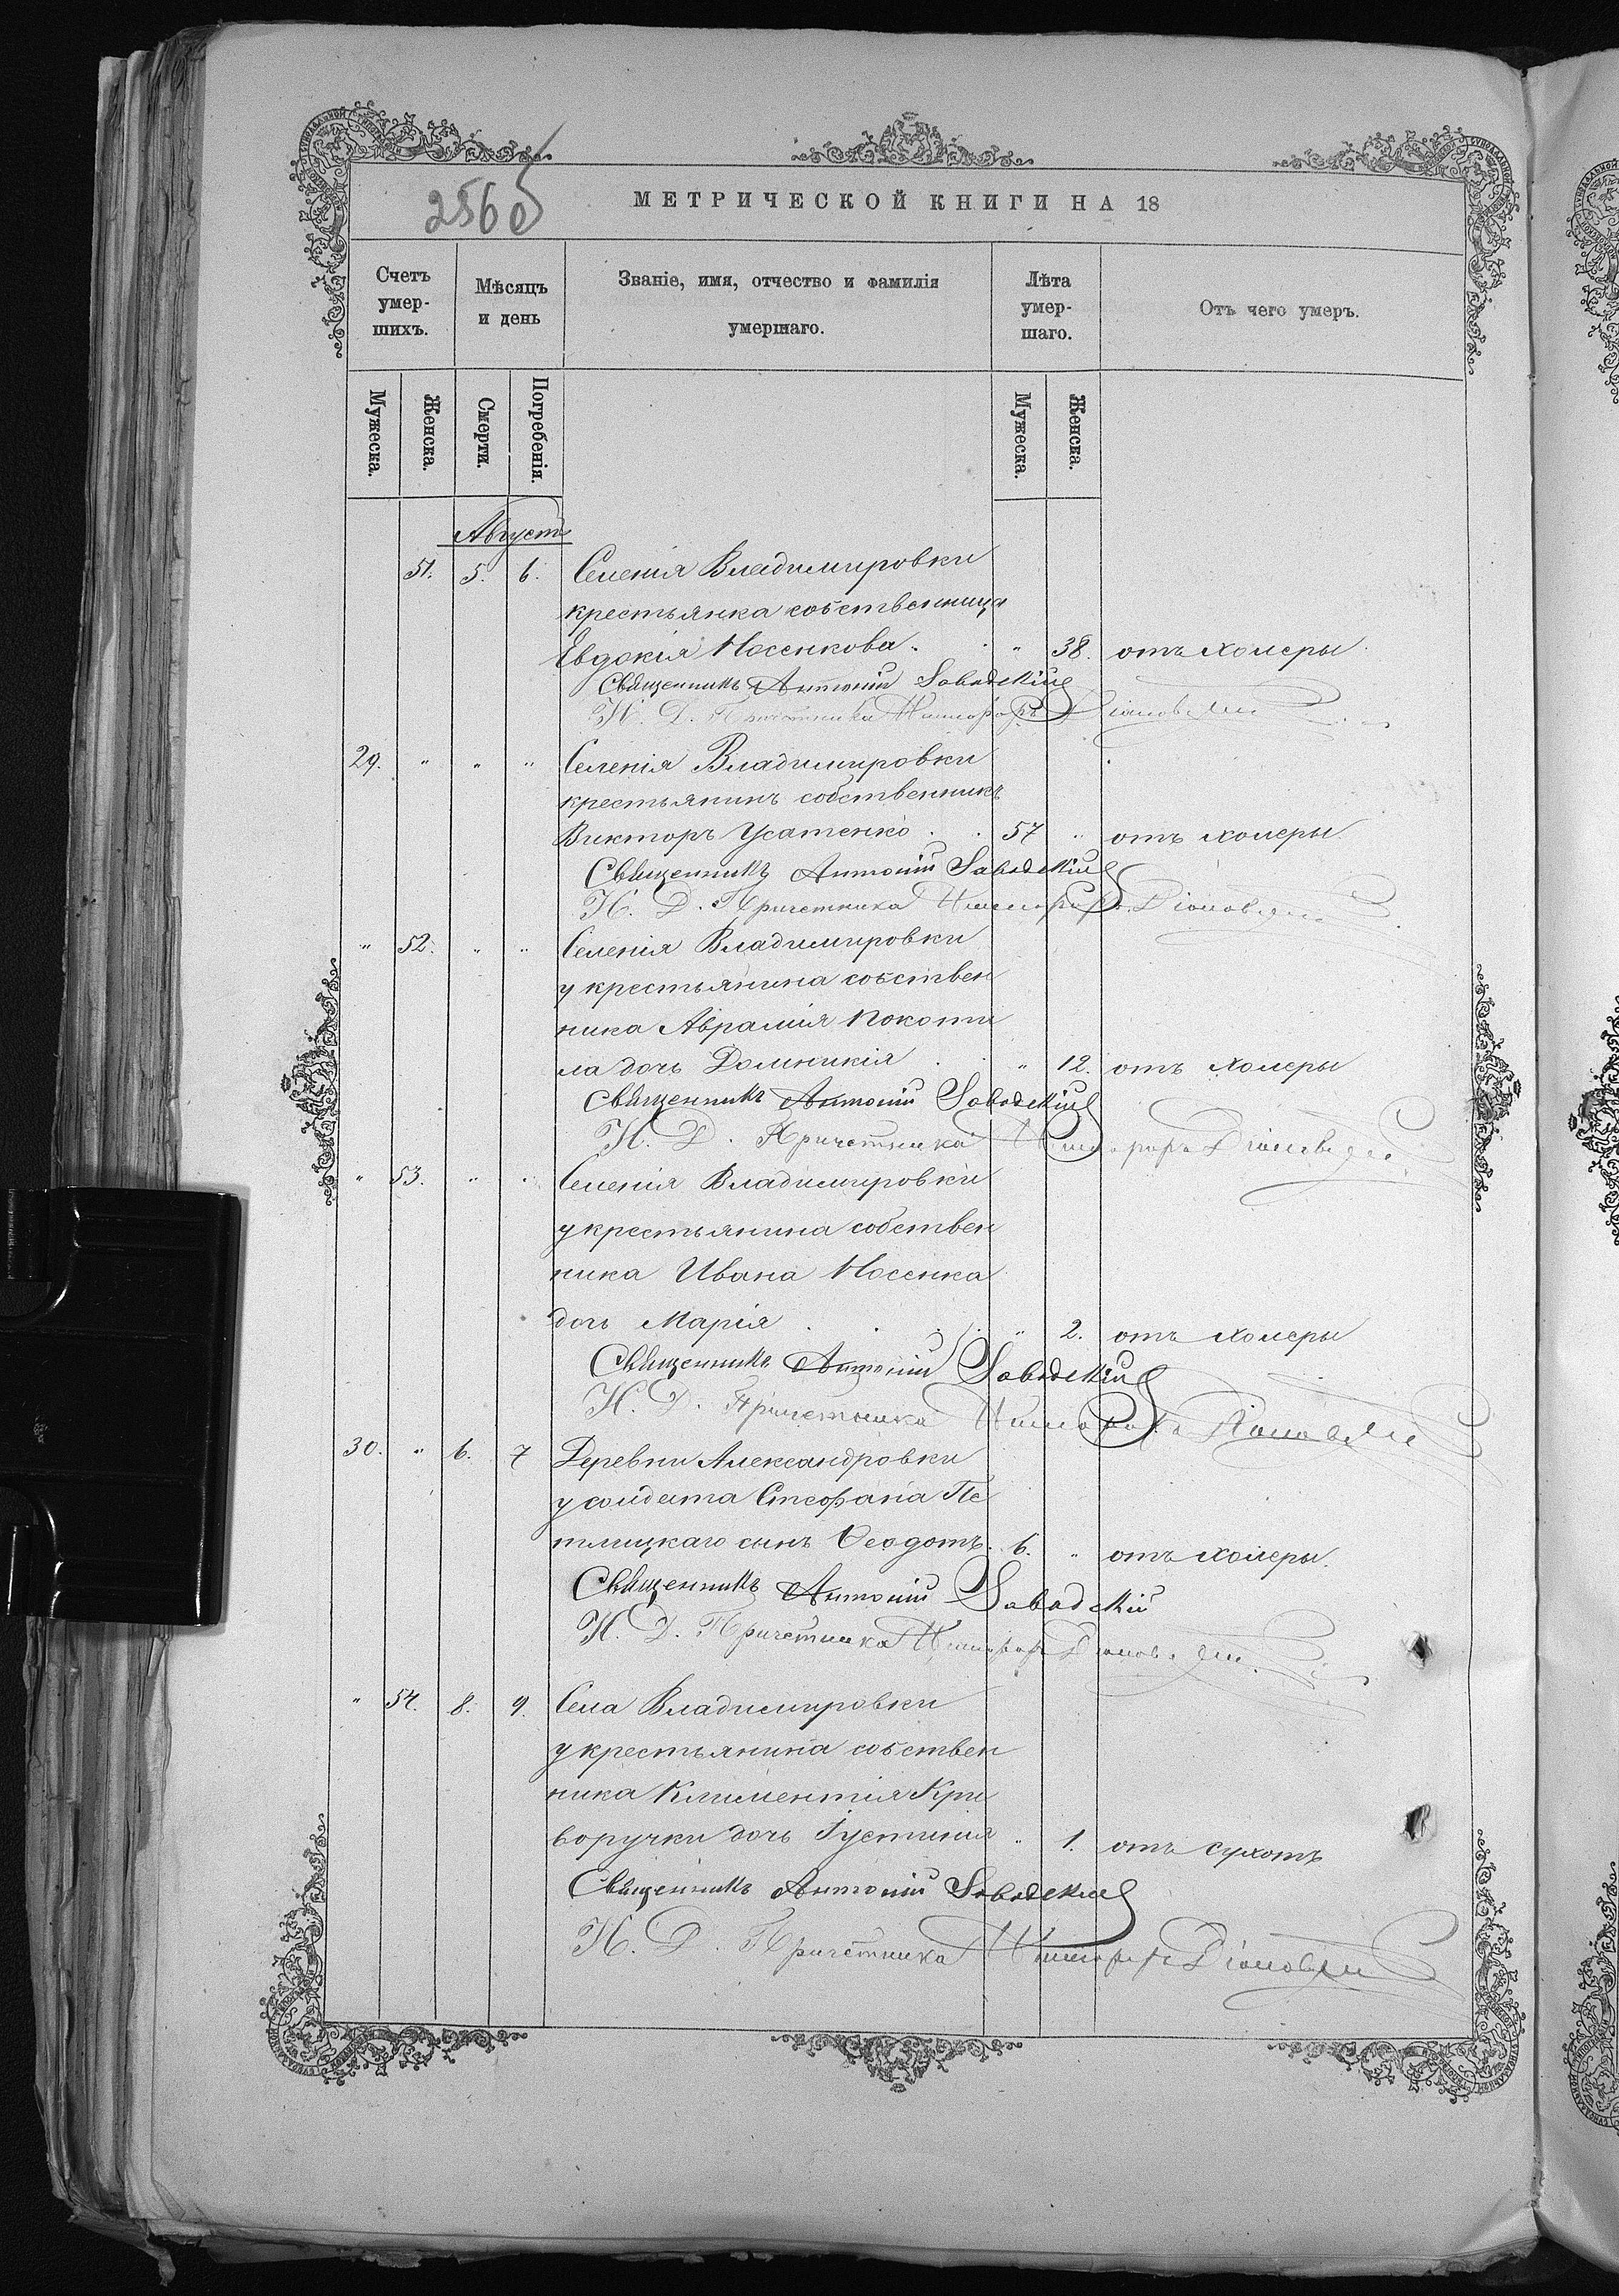 256об
МЕТРИЧЕСКОЙ КНИГИ НА 18
Счетъ умер-шихъ.
Мѣсяцъ и день
Званіе, имя, отчество и фамилія умершаго.
Лѣта умер-шаго.
Отъ чего умеръ.
Мужеска. Женска. Смерти. Погребенія. Мужеска. Женска.
Августъ
51. 5. 6. Селенія Владимировки
крестьянка собственница
Евдокія Носенкова. " 38. отъ холеры
Священникъ Антоній Завадскій
И. Д. Причетника Никифоръ
29. " " " Селенія Владимировки
крестьянинъ собственникъ
Викторъ Усатенко . . 57 " отъ холеры
Священникъ Антоній Завадскій
И. Д. Причетника Никифоръ
" 52. " " Селенія Владимировки
у крестьянина собствен
ника Аврамія Покоти
ла дочь Домникія . . " 12. отъ холеры
Священникъ Антоній Завадскій
И. Д. Причетника Никифоръ
" 53. " " Селенія Владимировки
у крестьянина собствен
ника Ивана Носенка
дочь Марія . . . " 2. отъ холеры
Священникъ Антоній Завадскій
И. Д. Причетника Никифоръ
30. " 6. 7 Деревни Александровки
у солдата Стефана Пе
тлицкаго сынъ Ѳеодотъ. 6. " отъ холеры.
Священникъ Антоній Завадскій
И. Д. Причетника Никифоръ
" 54. 8. 9. Села Владимировки
у крестьянина собствен
ника Климентія Кри
воручки дочь Іустинія " 1. отъ сухотъ
Священникъ Антоній Завадскій
И. Д. Причетника Никифоръ